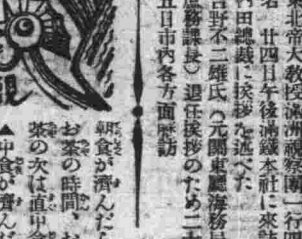 東北帝大教授滿洲視察團一行四
名　廿四日午後滿鐵本社に來訪
內田總裁に挨拶を述べた
吉野不二雄氏（元關東廳海務局
庶務課長）退任挨拶のため二十
五日市內各方面歷訪
朝食が濟んだら
お茶の時間、お
茶の次は直
▲中食が濟んだ